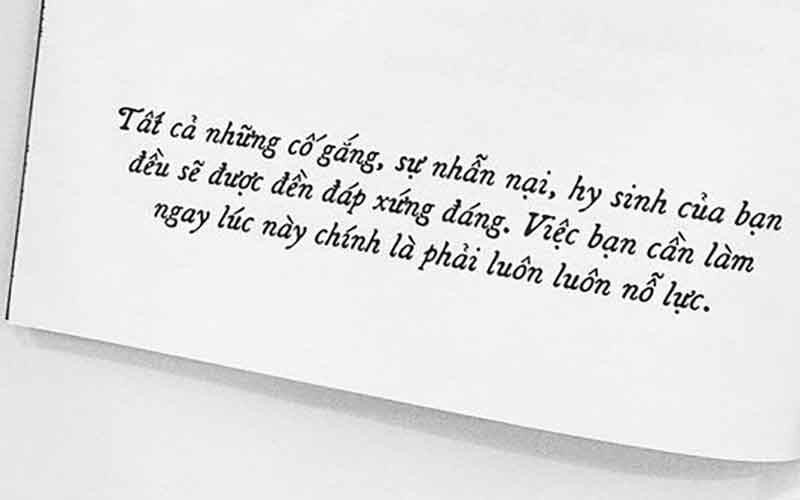 Tất cả những cố gắng, sự nhẫn nại, hy sinh của bạn
đều sẽ được đền đáp xứng đáng. Việc bạn cần làm
ngay lúc này chính là phải luôn luôn nỗ lực.